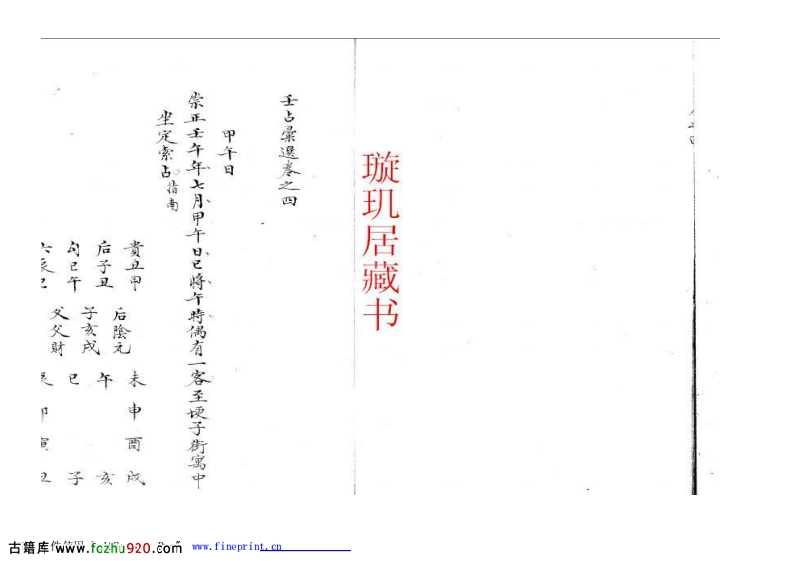 壬占彙選卷之四
甲午日
崇正壬午年七月甲午日巳將午時偶有一客至埂子街寓中
坐定索占 指南
貴丑甲
后子丑
勾巳午
六辰巳
后陰元
子亥戌
父父財
未申酉戌
午 亥
巳 子
辰卯寅丑
璇玑居藏书
古籍库 www.fozhu920.com
www.fineprint.cn